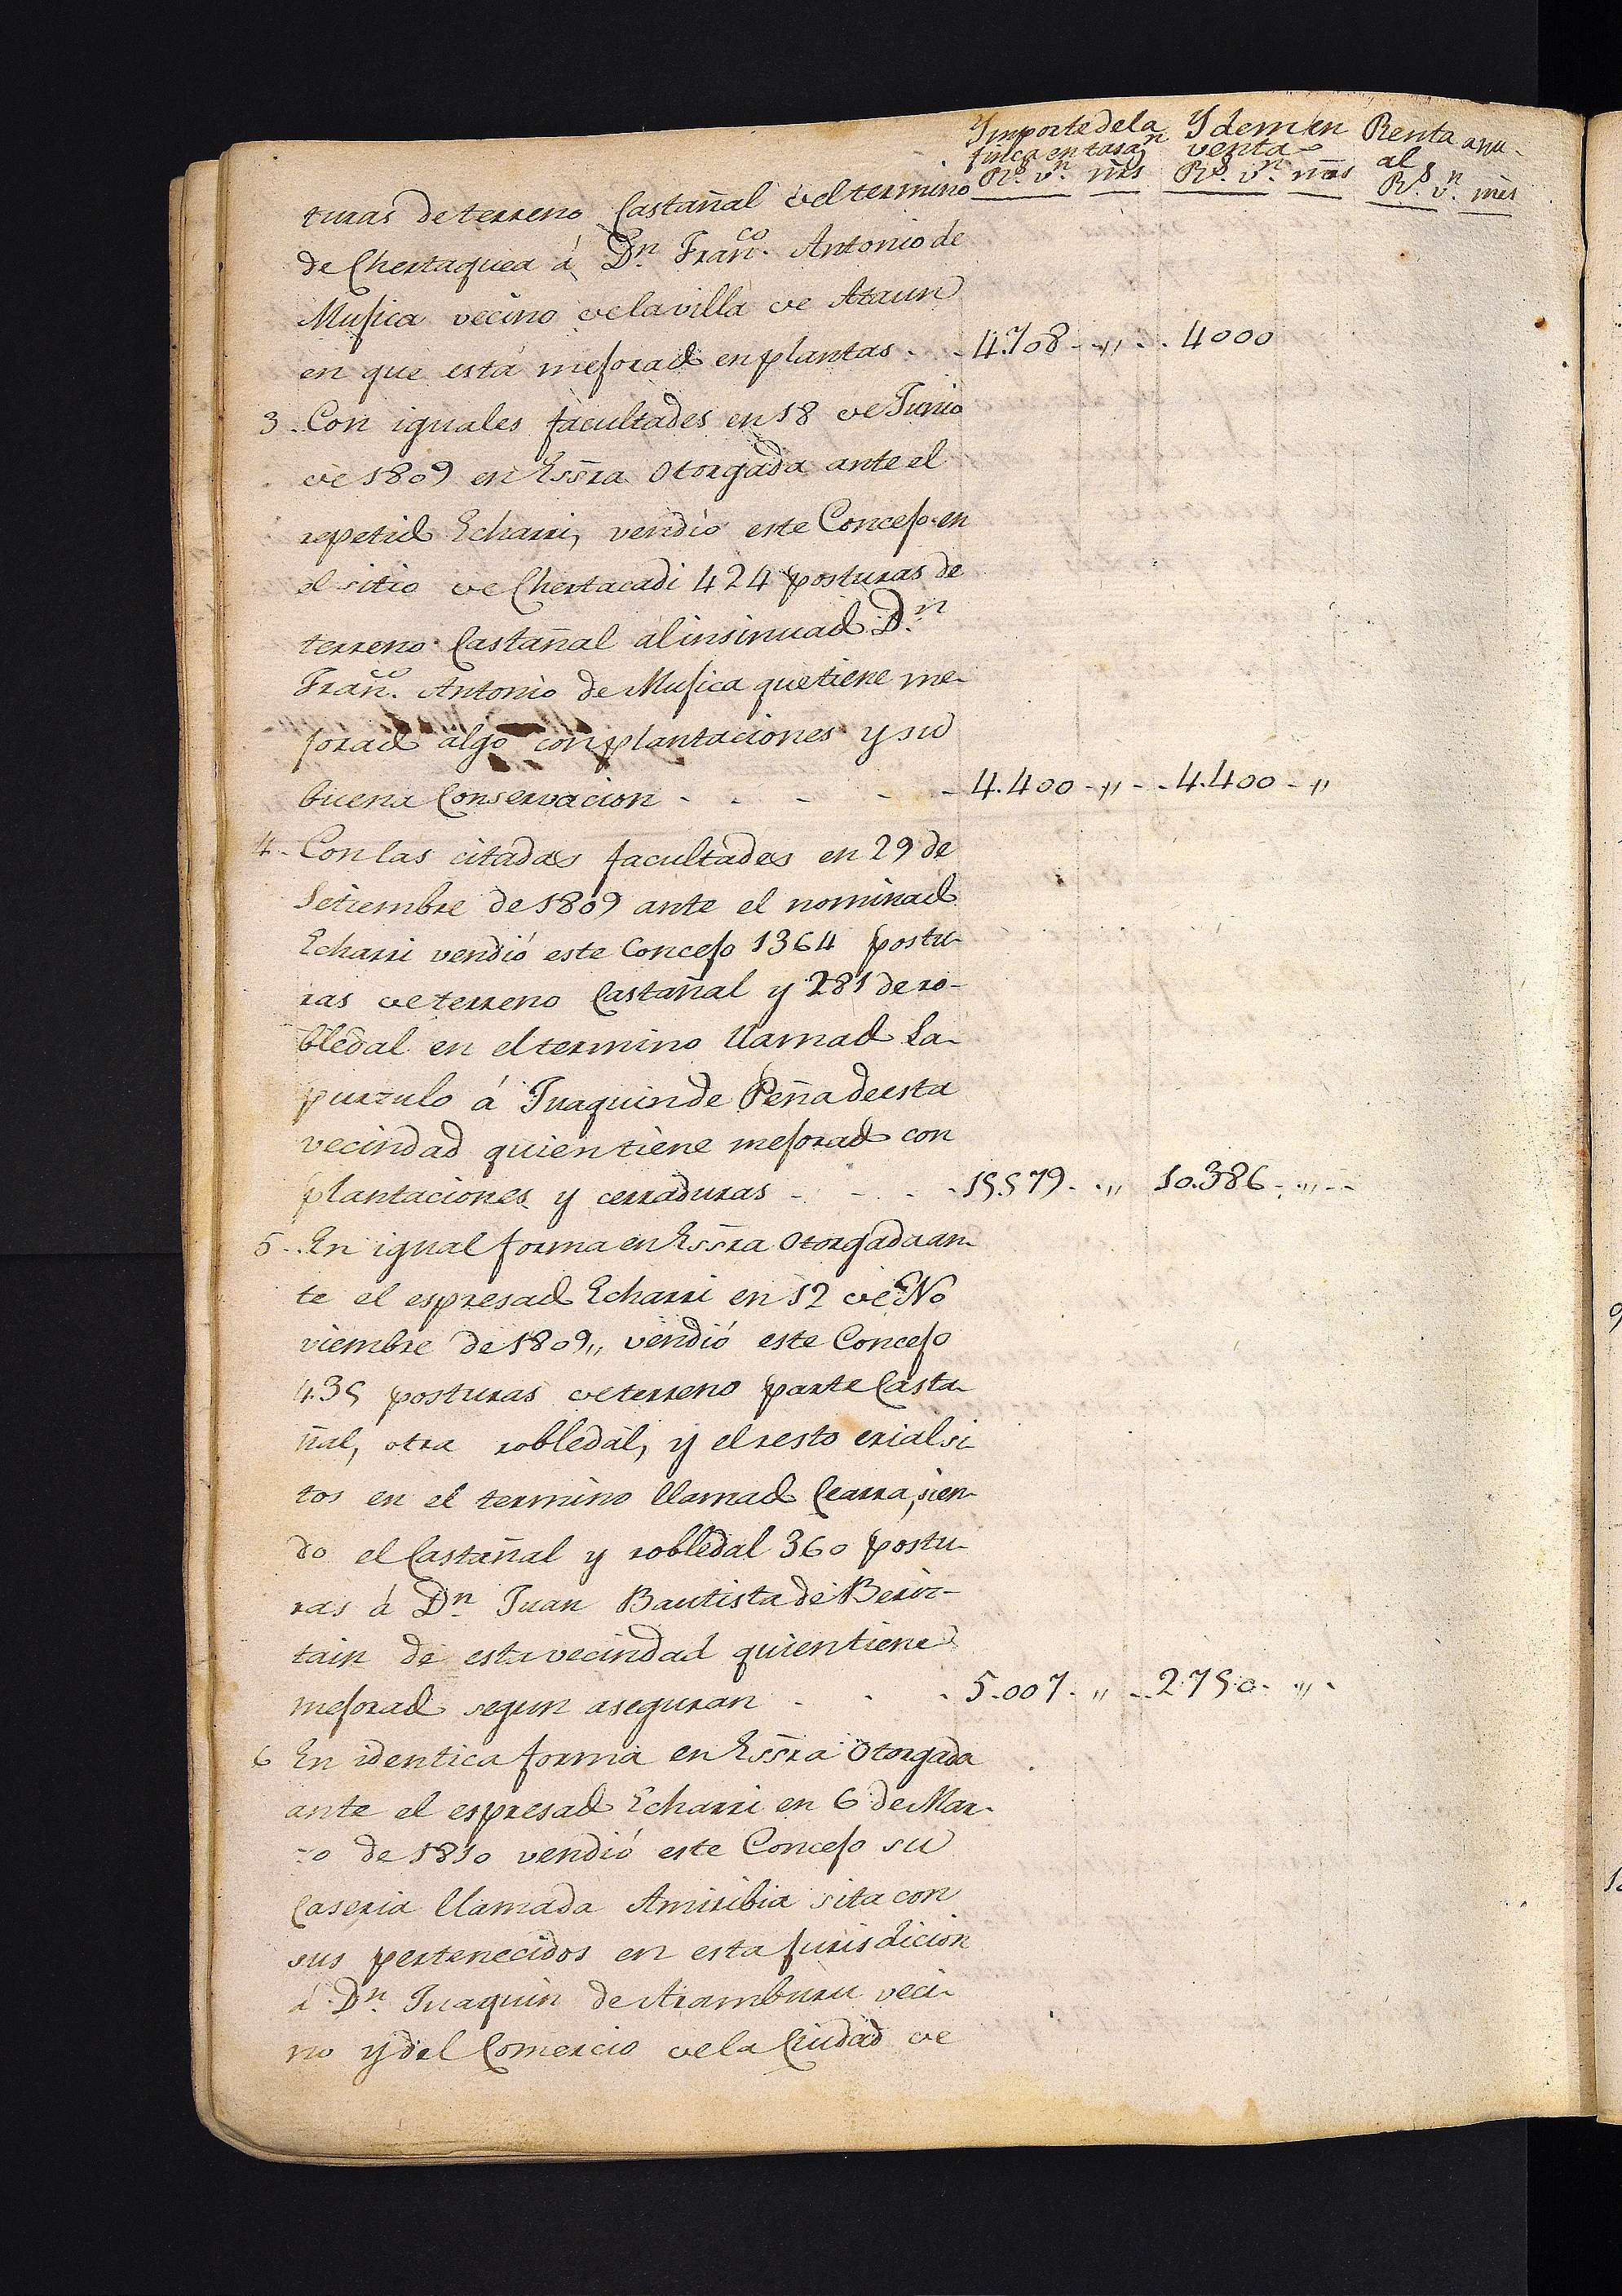 Ymporte de la Ydem en Renta anu-
finca en tasa.n venta al
R.s v.n mrs R.s v.n mrs R.s v.n mrs
turas de terreno Castañal del termino
de Chertaquea á D.n Fran.co Antonio de
Mujica vecino de la villa de Ataun
en que está mejorado en plantas - - 4.708 - ,, - - 4000
3. Con iguales facultades en 18 de Junio
de 1809 en Essra otorgada ante el
repetido Echarri, vendió este Concejo en
el sitio de Chertacadi 424 posturas de
terreno Castañal al insinuado D.n
Fran.co Antonio de Mujica que tiene me-
jorado algo con plantaciones y su
buena Conservacion - - - - - 4.400 - ,, - - 4.400 - ,,
4 - Con las citadas facultades en 29 de
Setiembre de 1809 ante el nominado
Echarri vendió este Concejo 1364 postu-
ras de terreno Castañal y 281 de ro-
bledal en el termino llamado La-
purzulo á Juaquin de Peña de esta
vecindad quien tiene mejorado con
plantaciones y cerraduras - - - - 15579 - ,, 10.386 - ,, - -
5 - En igual forma en Essra otorgada an-
te el espresado Echarri en 12 de No
viembre de 1809,, vendió este Concejo
435 posturas de terreno parte Casta-
ñal, otra robledal, y el resto erial si-
tos en el termino llamado Cearra, sien-
do el Castañal y robledal 360 postu-
ras á D.n Juan Bautista de Beroz-
tain de esta vecindad quien tiene
mejorado segun aseguran - - - 5.007 - ,, - - 2750 - ,, -
6 En identica forma en Essra otorgada
ante el espresado Echarri en 6 de Mar-
zo de 1810 vendió este Concejo su
Caseria llamada Amiribia sita con
sus pertenecidos en esta jurisdicion
á D.n Juaquin de Aramburu veci-
no y del Comercio de la Ciudad de